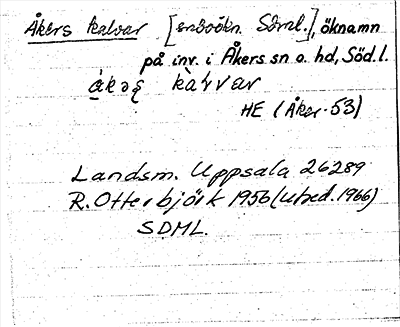 Åkers kalvar [småökn. Söml.], öknamn
på inv. i Åkers sn o. hd, Söd.l.
kàrvar
HE (Åker. 53)
Landsm. Uppsala 26289
R. Otterbjörk 1956 (utred. 1966)
SDML.